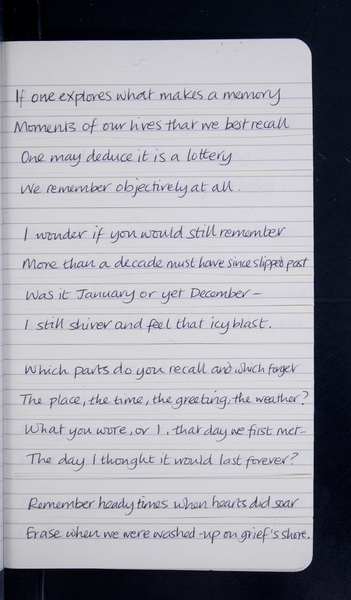 If one explores what makes a memory
Moments of our lives that we best recall
One may deduce it is a lottery
We remember objectively at all.
I wonder if you would still remember
More than a decade must have since slipped past
Was it January or yet December –
I still shiver and feel that icy blast.
Which parts do you recall and which forget
The place, the time, the greeting, the weather?
What you wore, or I, that day we first met –
The day I thought it would last forever?
Remember heady times when hearts did soar
Erase when we were washed-up on grief's shore.